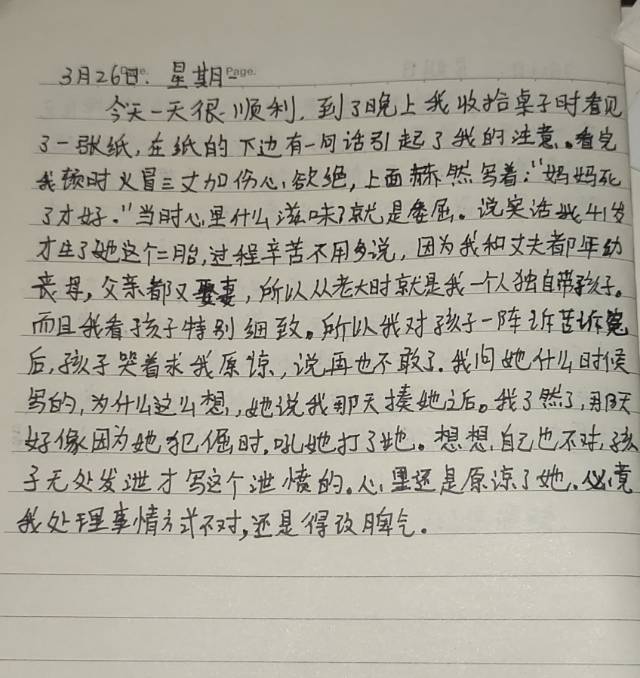 3月26日. 星期一
Page.
今天一天很顺利，到了晚上我收拾桌子时看见
了一张纸，在纸的下边有一句话引起了我的注意。看完
我顿时火冒三丈加伤心欲绝，上面赫然写着："妈妈死
了才好."当时心里什么滋味？就是委屈。说实话我41岁
才生了她这个二胎，过程辛苦不用多说，因为我和丈夫都年幼
丧母，父亲都又娶妻，所以从老大时就是我一个人独自带孩子。
而且我看孩子特别细致。所以我对孩子一阵诉苦诉冤
后，孩子哭着求我原谅，说再也不敢了.我问她什么时候
写的，为什么这么想，她说我那天揍她之后。我了然了，那天
好像因为她犯倔时，吼她打了她。想想自己也不对，孩
子无处发泄才写这个泄愤的。心里还是原谅了她，必竟
我处理事情方式不对，还是得改脾气。